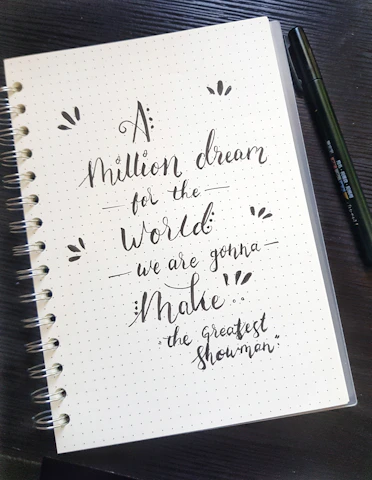 A
Million dream
— for the —
World
— we are gonna —
Make
the Greatest
Showman"